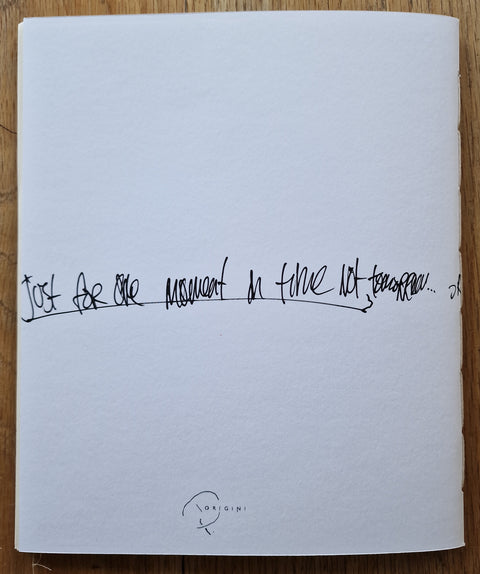 just for one moment in time not tomorrow...
ORIGINI